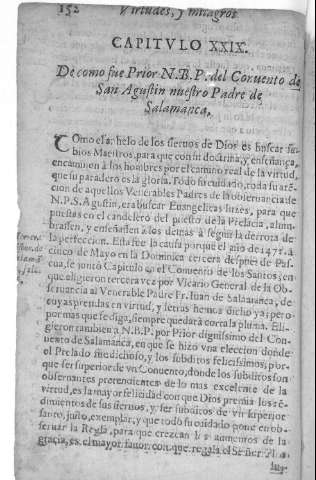 152 Virtudes, y milagros
CAPITVLO XXIX.
De como fue Prior N.B.P. del Conuento de
San Agustin nuestro Padre de
Salamanca.
COmo el anhelo de los sieruos de Dios es buscar sa-
bios Maestros, para que con su doctrina, y enseñança,
encaminen à los hombres por el camino real de la virtud,
que su paradero es la gloria. Todo su cuidado, toda su atẽ-
cion de aquellos Venerables Padres de la obseruancia de
N.P.S. Agustin, era buscar Euangelicas luzes, para que
puestos en el candelero del puesto de la Prelacia, alum-
brassen, y enseñassen à los demas à seguir la derrota de
la perfeccion. Esta fue la causa porque el año de 1471. à
cinco de Mayo en la Dominica tercera despues de Pas-
cua, se juntò Capitulo en el Conuento de los Santos, en
que eligieron tercera vez por Vicario General de la Ob-
seruancia al Venerable Padre Fr. Iuan de Salamanca, de
cuyas prendas en virtud, y letras hemos dicho ya; pero
por mas que se diga, siempre quedarà corta la pluma. Eli-
gieron tambien à N.B.P. por Prior dignissimo del Con-
uento de Salamanca, en que se hizo vna eleccion donde
el Prelado fue dichoso, y los subditos felicissimos, por-
que ser superior de vn Conuento, donde los subditos son
obseruantes pretendientes de lo mas excelente de la
virtud, es la mayor felicidad con que Dios premia los rẽ-
dimientos de sus sieruos, y ser subditos de vn superior
santo, justo, exemplar, y que todo su cuidado pone en ob-
seruar la Regla, para que crezcan los aumentos de la
gracia, es el mayor fauor con que regala el Señor à